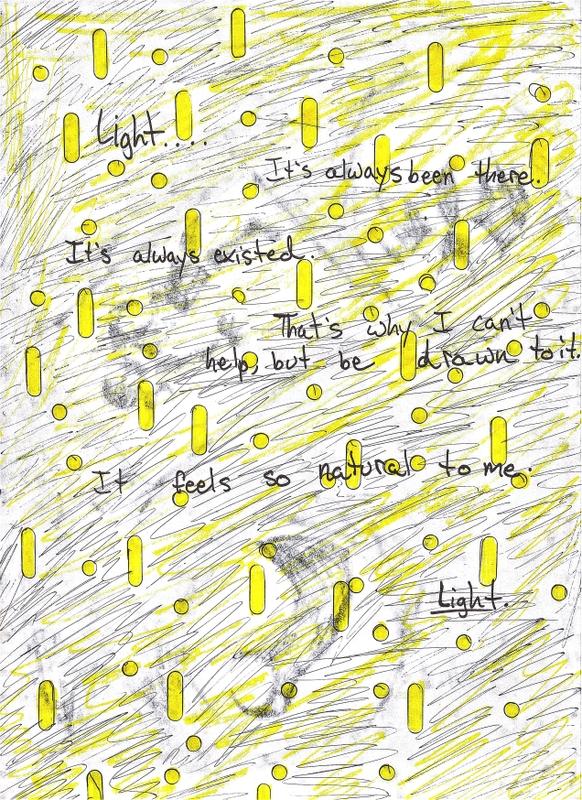 Light....
It's always been there.
It's always existed.
That's why I can't
help, but be drawn to it.
It feels so natural to me.
Light.